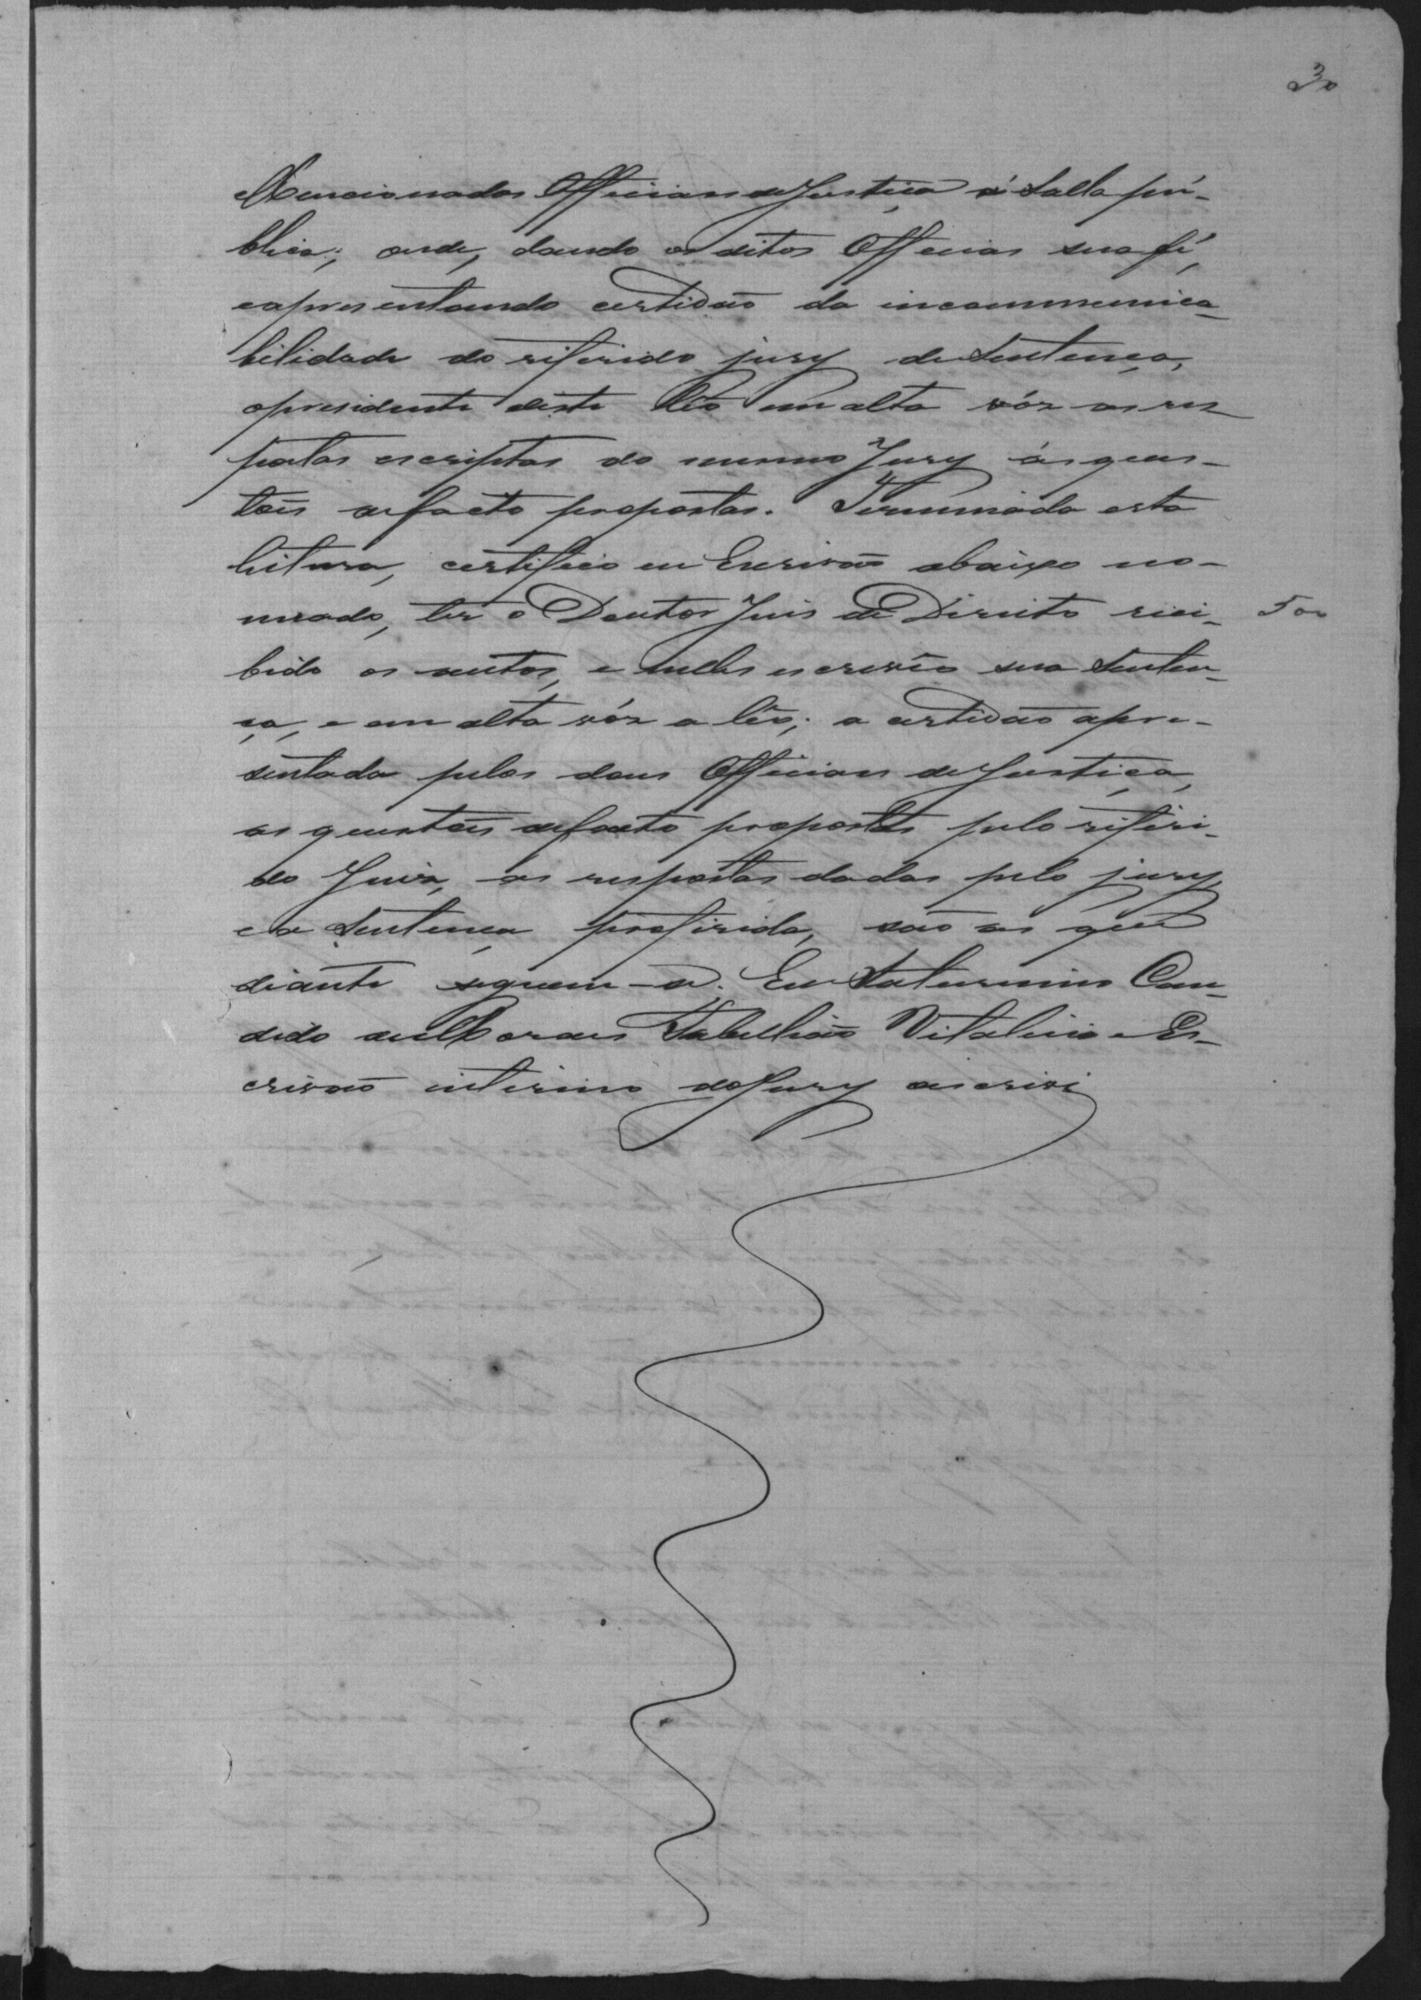 30
Mencionados Officiaes de Justiça á Salla pú-
blica; onde, dando os ditos Officias sua fé,
eapresentando certidão da incommunica-
bilidade do referido jury de Sentença,
opresidente deste lêo em alta vóz as res
postas escriptas do mesmo Jury ás ques-
tões de facto propostas. Terminada esta
leitura, certifico eu Escrivão abaixo no-
meado, ter o Doutor Juis de Direito rece-
500
bido os autos, e nelles escrevêo sua Senten-
ça, e em alta vóz a lêo; a certidão apre-
sentada pelos dous Officiaes de Justiça,
as questões de facto propostas pelo referi-
do Juiz, as respostas dadas pelo jury
e a Sentença proferida, são as que
diante seguem-se. Eu Saturnino Can-
dido de Moraes Tabellião Vitalicio e Es-
crivão interino do Jury o escrevi